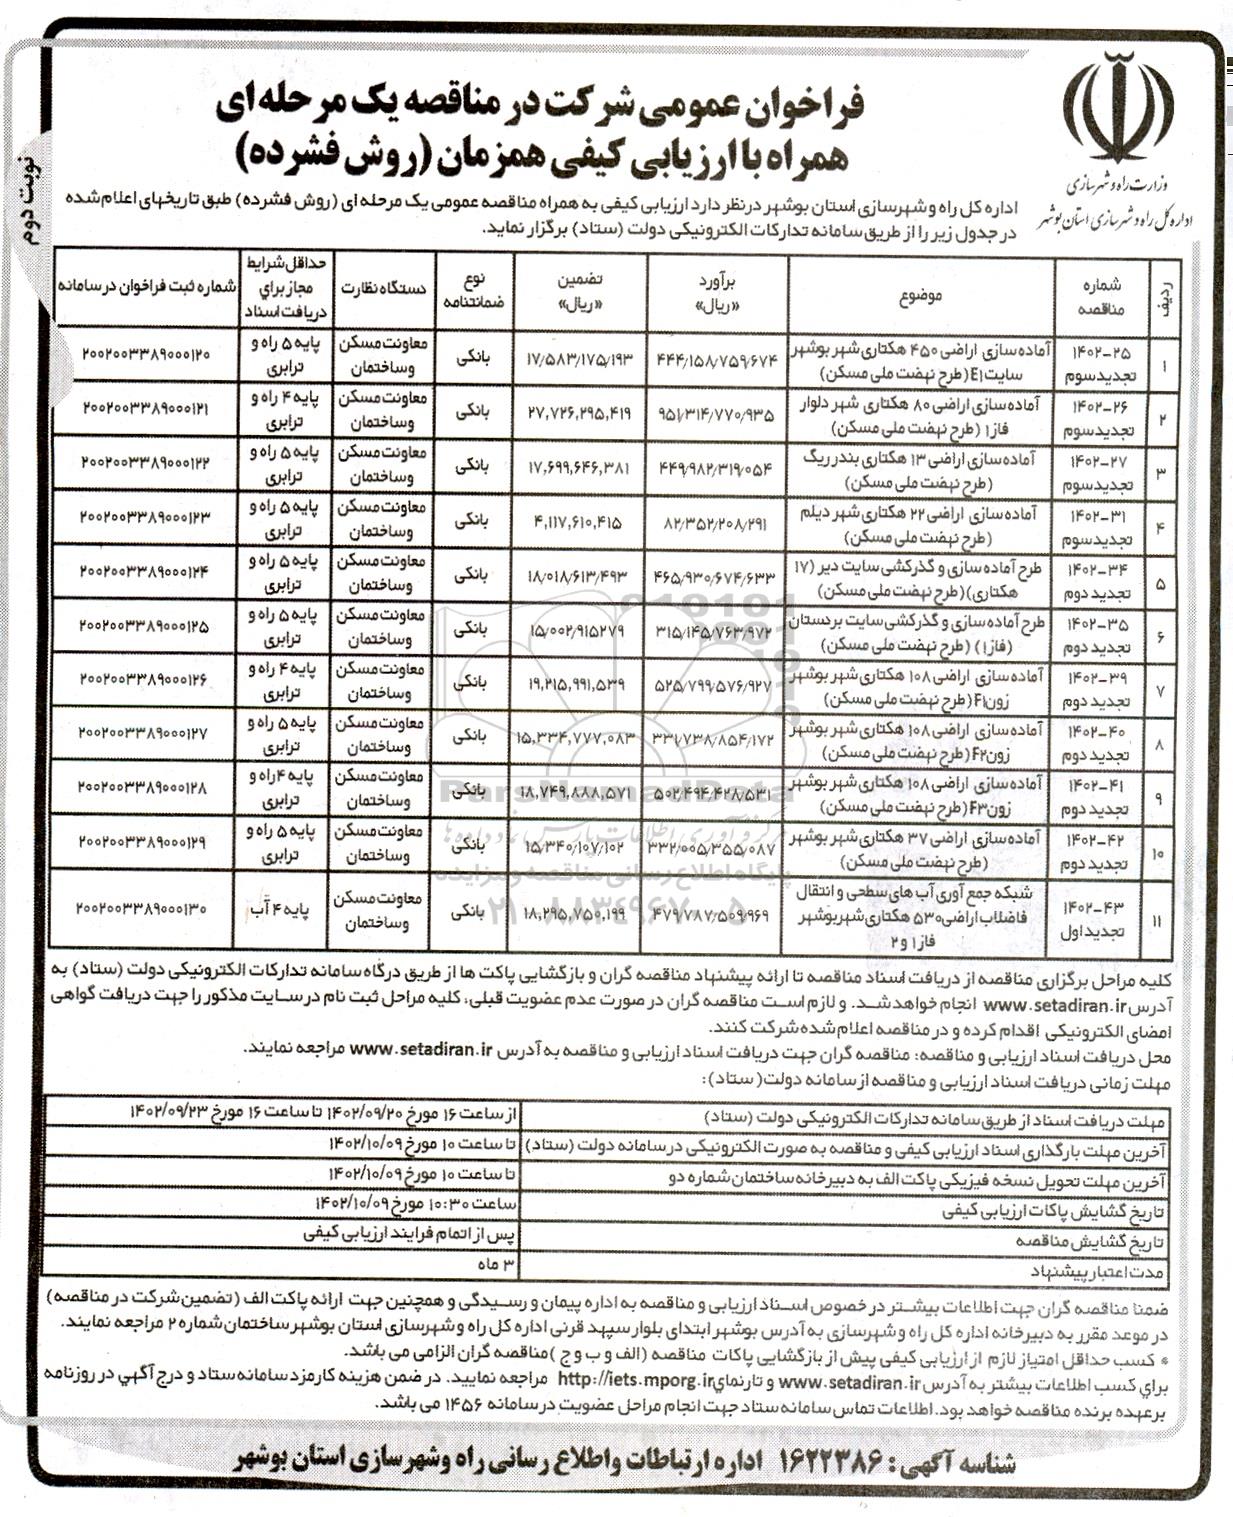 فراخوان عمومی شرکت در مناقصه یک مرحله‌ای
همراه با ارزیابی کیفی همزمان (روش فشرده)
وزارت راه و شهرسازی
اداره کل راه و شهرسازی استان بوشهر
نوبت دوم
اداره کل راه و شهرسازی استان بوشهر در نظر دارد ارزیابی کیفی به همراه مناقصه عمومی یک مرحله ای (روش فشرده) طبق تاریخهای اعلام شده
در جدول زیر را از طریق سامانه تدارکات الکترونیکی دولت (ستاد) برگزار نماید.
ردیف | شماره مناقصه | موضوع | برآورد «ریال» | تضمین «ریال» | نوع ضمانتنامه | دستگاه نظارت | حداقل شرایط مجاز برای دریافت اسناد | شماره ثبت فراخوان در سامانه
۱ | ۱۴۰۲-۲۵ تجدید سوم | آماده سازی اراضی ۴۵۰ هکتاری شهر بوشهر سایت E۱ (طرح نهضت ملی مسکن) | ۴۴۴/۱۵۸/۷۵۹/۶۷۴ | ۱۷/۵۸۳/۱۷۵/۱۹۳ | بانکی | معاونت مسکن وساختمان | پایه ۵ راه و ترابری | ۲۰۰۲۰۰۳۳۸۹۰۰۰۱۲۰
۲ | ۱۴۰۲-۲۶ تجدید سوم | آماده سازی اراضی ۸۰ هکتاری شهر دلوار فاز۱ (طرح نهضت ملی مسکن) | ۹۵۱/۳۱۴/۷۷۰/۹۳۵ | ۲۷,۷۲۶,۲۹۵,۴۱۹ | بانکی | معاونت مسکن وساختمان | پایه ۴ راه و ترابری | ۲۰۰۲۰۰۳۳۸۹۰۰۰۱۲۱
۳ | ۱۴۰۲-۲۷ تجدید سوم | آماده سازی اراضی ۱۳ هکتاری بندر ریگ (طرح نهضت ملی مسکن) | ۴۴۹/۹۸۲/۳۱۹/۰۵۴ | ۱۷,۶۹۹,۶۴۶,۳۸۱ | بانکی | معاونت مسکن وساختمان | پایه ۵ راه و ترابری | ۲۰۰۲۰۰۳۳۸۹۰۰۰۱۲۲
۴ | ۱۴۰۲-۳۱ تجدید سوم | آماده سازی اراضی ۲۲ هکتاری شهر دیلم (طرح نهضت ملی مسکن) | ۸۲/۳۵۲/۲۰۸/۲۹۱ | ۴,۱۱۷,۶۱۰,۴۱۵ | بانکی | معاونت مسکن وساختمان | پایه ۵ راه و ترابری | ۲۰۰۲۰۰۳۳۸۹۰۰۰۱۲۳
۵ | ۱۴۰۲-۳۴ تجدید دوم | طرح آماده سازی و گذرکشی سایت دیر (۱۷ هکتاری)(طرح نهضت ملی مسکن) | ۴۶۵/۹۳۰/۶۷۴/۶۳۳ | ۱۸/۰۱۸/۶۱۳/۴۹۳ | بانکی | معاونت مسکن وساختمان | پایه ۵ راه و ترابری | ۲۰۰۲۰۰۳۳۸۹۰۰۰۱۲۴
۶ | ۱۴۰۲-۳۵ تجدید دوم | طرح آماده سازی و گذرکشی سایت بردستان (فاز۱) (طرح نهضت ملی مسکن) | ۳۱۵/۱۴۵/۷۶۳/۹۷۲ | ۱۵/۰۰۲/۹۱۵۲۷۹ | بانکی | معاونت مسکن وساختمان | پایه ۵ راه و ترابری | ۲۰۰۲۰۰۳۳۸۹۰۰۰۱۲۵
۷ | ۱۴۰۲-۳۹ تجدید دوم | آماده سازی اراضی ۱۰۸ هکتاری شهر بوشهر زونF۱ (طرح نهضت ملی مسکن) | ۵۲۵/۷۹۹/۵۷۶/۹۲۷ | ۱۹,۲۱۵,۹۹۱,۵۳۹ | بانکی | معاونت مسکن وساختمان | پایه ۴ راه و ترابری | ۲۰۰۲۰۰۳۳۸۹۰۰۰۱۲۶
۸ | ۱۴۰۲-۴۰ تجدید دوم | آماده سازی اراضی ۱۰۸ هکتاری شهر بوشهر زونF۲ (طرح نهضت ملی مسکن) | ۳۳۱/۷۳۸/۸۵۴/۱۷۲ | ۱۵,۳۳۴,۷۷۷,۰۸۳ | بانکی | معاونت مسکن وساختمان | پایه ۵ راه و ترابری | ۲۰۰۲۰۰۳۳۸۹۰۰۰۱۲۷
۹ | ۱۴۰۲-۴۱ تجدید دوم | آماده سازی اراضی ۱۰۸ هکتاری شهر بوشهر زونF۳ (طرح نهضت ملی مسکن) | ۵۰۲/۴۹۴/۴۲۸/۵۳۱ | ۱۸,۷۴۹,۸۸۸,۵۷۱ | بانکی | معاونت مسکن وساختمان | پایه ۴ راه و ترابری | ۲۰۰۲۰۰۳۳۸۹۰۰۰۱۲۸
۱۰ | ۱۴۰۲-۴۲ تجدید دوم | آماده سازی اراضی ۳۷ هکتاری شهر بوشهر (طرح نهضت ملی مسکن) | ۳۳۲/۰۰۵/۳۵۵/۰۸۷ | ۱۵/۳۴۰/۱۰۷/۱۰۲ | بانکی | معاونت مسکن وساختمان | پایه ۵ راه و ترابری | ۲۰۰۲۰۰۳۳۸۹۰۰۰۱۲۹
۱۱ | ۱۴۰۲-۴۳ تجدید اول | شبکه جمع آوری آب های سطحی و انتقال فاضلاب اراضی ۵۳۰ هکتاری شهر بوشهر فاز ۱ و ۲ | ۴۷۹/۷۸۷/۵۰۹/۹۶۹ | ۱۸,۲۹۵,۷۵۰,۱۹۹ | بانکی | معاونت مسکن وساختمان | پایه ۴ آب | ۲۰۰۲۰۰۳۳۸۹۰۰۰۱۳۰
ParsNamadData
مرکز فرآوری اطلاعات پارس نماد داده ها
پایگاه اطلاع رسانی مناقصه و مزایده
۰۲۱-۸۸۳۴۹۶۷۰-۵
کلیه مراحل برگزاری مناقصه از دریافت اسناد مناقصه تا ارائه پیشنهاد مناقصه گران و بازگشایی پاکت ها از طریق درگاه سامانه تدارکات الکترونیکی دولت (ستاد) به
آدرس www.setadiran.ir انجام خواهد شد. و لازم است مناقصه گران در صورت عدم عضویت قبلی، کلیه مراحل ثبت نام در سایت مذکور را جهت دریافت گواهی
امضای الکترونیکی اقدام کرده و در مناقصه اعلام شده شرکت کنند.
محل دریافت اسناد ارزیابی و مناقصه: مناقصه گران جهت دریافت اسناد ارزیابی و مناقصه به آدرس www.setadiran.ir مراجعه نمایند.
مهلت زمانی دریافت اسناد ارزیابی و مناقصه از سامانه دولت( ستاد):
مهلت دریافت اسناد از طریق سامانه تدارکات الکترونیکی دولت (ستاد) | از ساعت ۱۶ مورخ ۱۴۰۲/۰۹/۲۰ تا ساعت ۱۶ مورخ ۱۴۰۲/۰۹/۲۳
آخرین مهلت بارگذاری اسناد ارزیابی کیفی و مناقصه به صورت الکترونیکی در سامانه دولت (ستاد) | تا ساعت ۱۰ مورخ ۱۴۰۲/۱۰/۰۹
آخرین مهلت تحویل نسخه فیزیکی پاکت الف به دبیرخانه ساختمان شماره دو | تا ساعت ۱۰ مورخ ۱۴۰۲/۱۰/۰۹
تاریخ گشایش پاکات ارزیابی کیفی | ساعت ۱۰:۳۰ مورخ ۱۴۰۲/۱۰/۰۹
تاریخ گشایش مناقصه | پس از اتمام فرایند ارزیابی کیفی
مدت اعتبار پیشنهاد | ۳ ماه
ضمنا مناقصه گران جهت اطلاعات بیشتر در خصوص اسناد ارزیابی و مناقصه به اداره پیمان و رسیدگی و همچنین جهت ارائه پاکت الف (تضمین شرکت در مناقصه)
در موعد مقرر به دبیرخانه اداره کل راه و شهرسازی به آدرس بوشهر ابتدای بلوار سپهبد قرنی اداره کل راه و شهرسازی استان بوشهر ساختمان شماره ۲ مراجعه نمایند.
* کسب حداقل امتیاز لازم از ارزیابی کیفی پیش از بازگشایی پاکات مناقصه (الف و ب و ج )مناقصه گران الزامی می باشد.
برای کسب اطلاعات بیشتر به آدرس www.setadiran.ir و تارنمای http://iets.mporg.ir مراجعه نمایید. در ضمن هزینه کارمزد سامانه ستاد و درج آگهی در روزنامه
برعهده برنده مناقصه خواهد بود. اطلاعات تماس سامانه ستاد جهت انجام مراحل عضویت در سامانه ۱۴۵۶ می باشد.
شناسه آگهی: ۱۶۲۲۳۸۶ اداره ارتباطات واطلاع رسانی راه وشهرسازی استان بوشهر